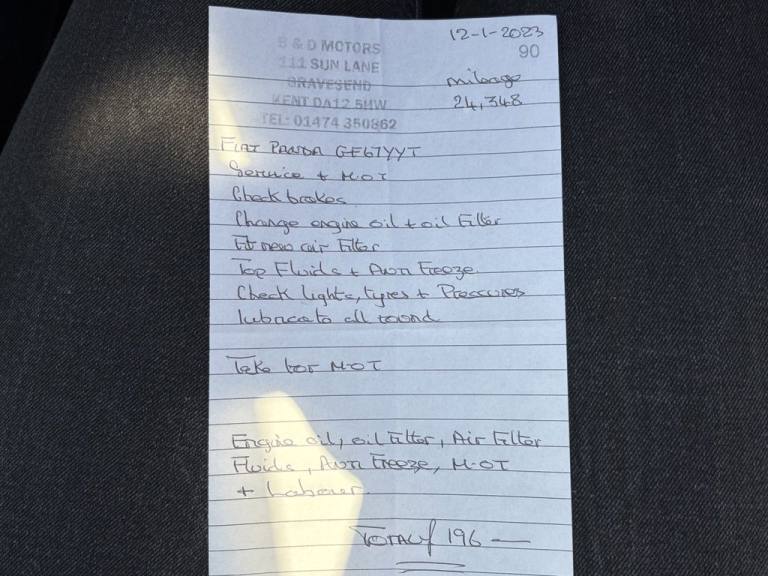 12-1-2023
B & D MOTORS
90
111 SUN LANE
GRAVESEND
mileage
KENT DA12 5HW
24,348
TEL: 01474 350862
FIAT PANDA GF67YYT
Service + M.O.T
Check brakes
Change engine oil + oil Filter
Fit new air Filter
Top Fluids + Anti Freeze
Check lights, tyres + Pressures
lubricate all round
Take for M-OT
Engine oil, oil Filter, Air Filter
Fluids, Anti Freeze, M-OT
+ Labour.
TOTAL £ 196 —